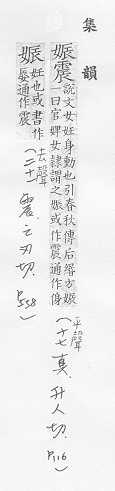 集韻
娠震
說文女妊身動也引春秋傳后緡方娠
一曰官婢女隸謂之娠或作震通作身
(平聲十七真.升人切. P.116)
娠
妊也或書作
㛛通作震
(去聲二十一震.之刃切. P.538)